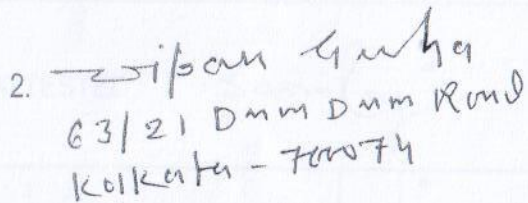 2. Dipan Guha
63/21 Dum Dum Road
Kolkata - 700074